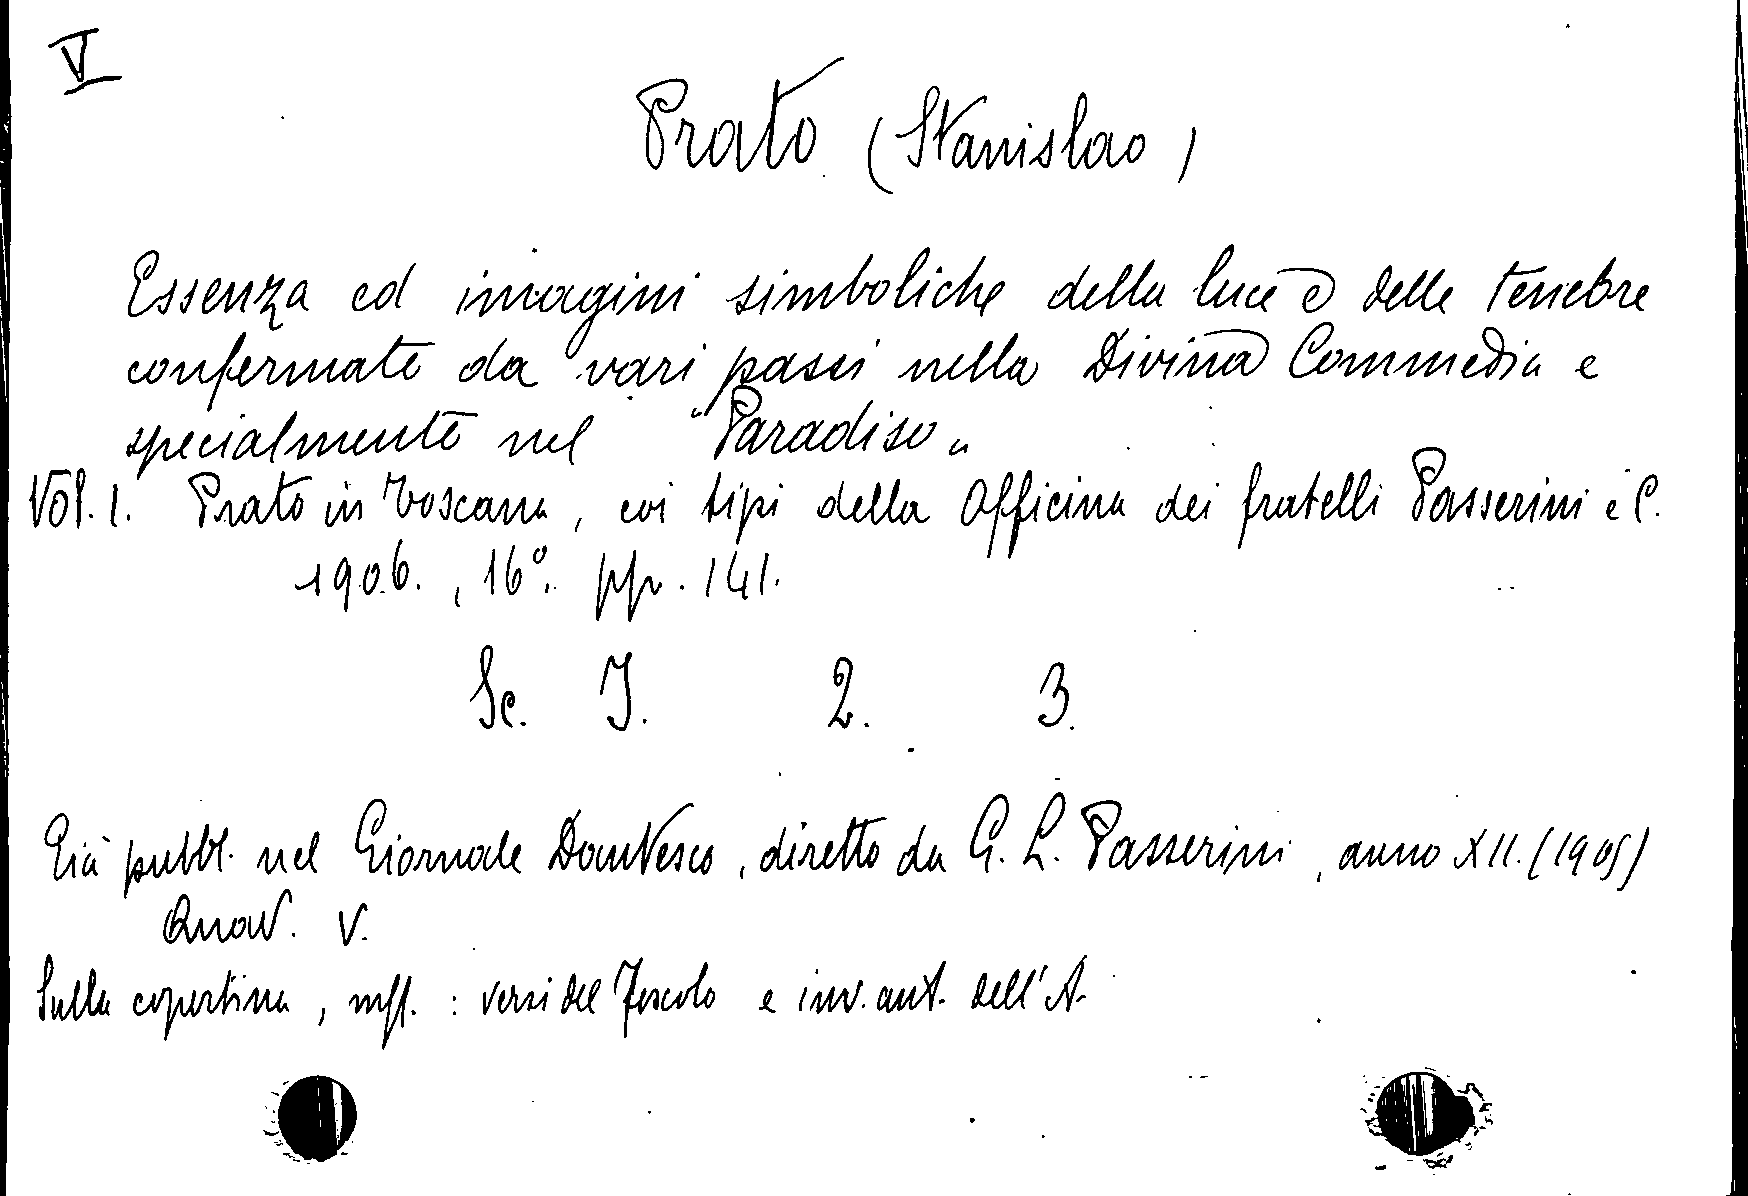 V
Prato (Stanislao)
Essenza ed imagini simboliche della luce e delle tenebre
confermate da vari passi nella Divina Commedia e
specialmente nel "Paradiso"
Vol. 1. Prato in Toscana, coi tipi della Officina dei fratelli Passerini e C.
1906., 16°. pp. 141.
Sc. I. 2. 3.
Già pubbl. nel Giornale Dantesco, diretto da G. L. Passerini, anno XII. (1905)
Quad. V.
Sulla copertina, mss. : versi del Foscolo e inv. aut. dell'A.